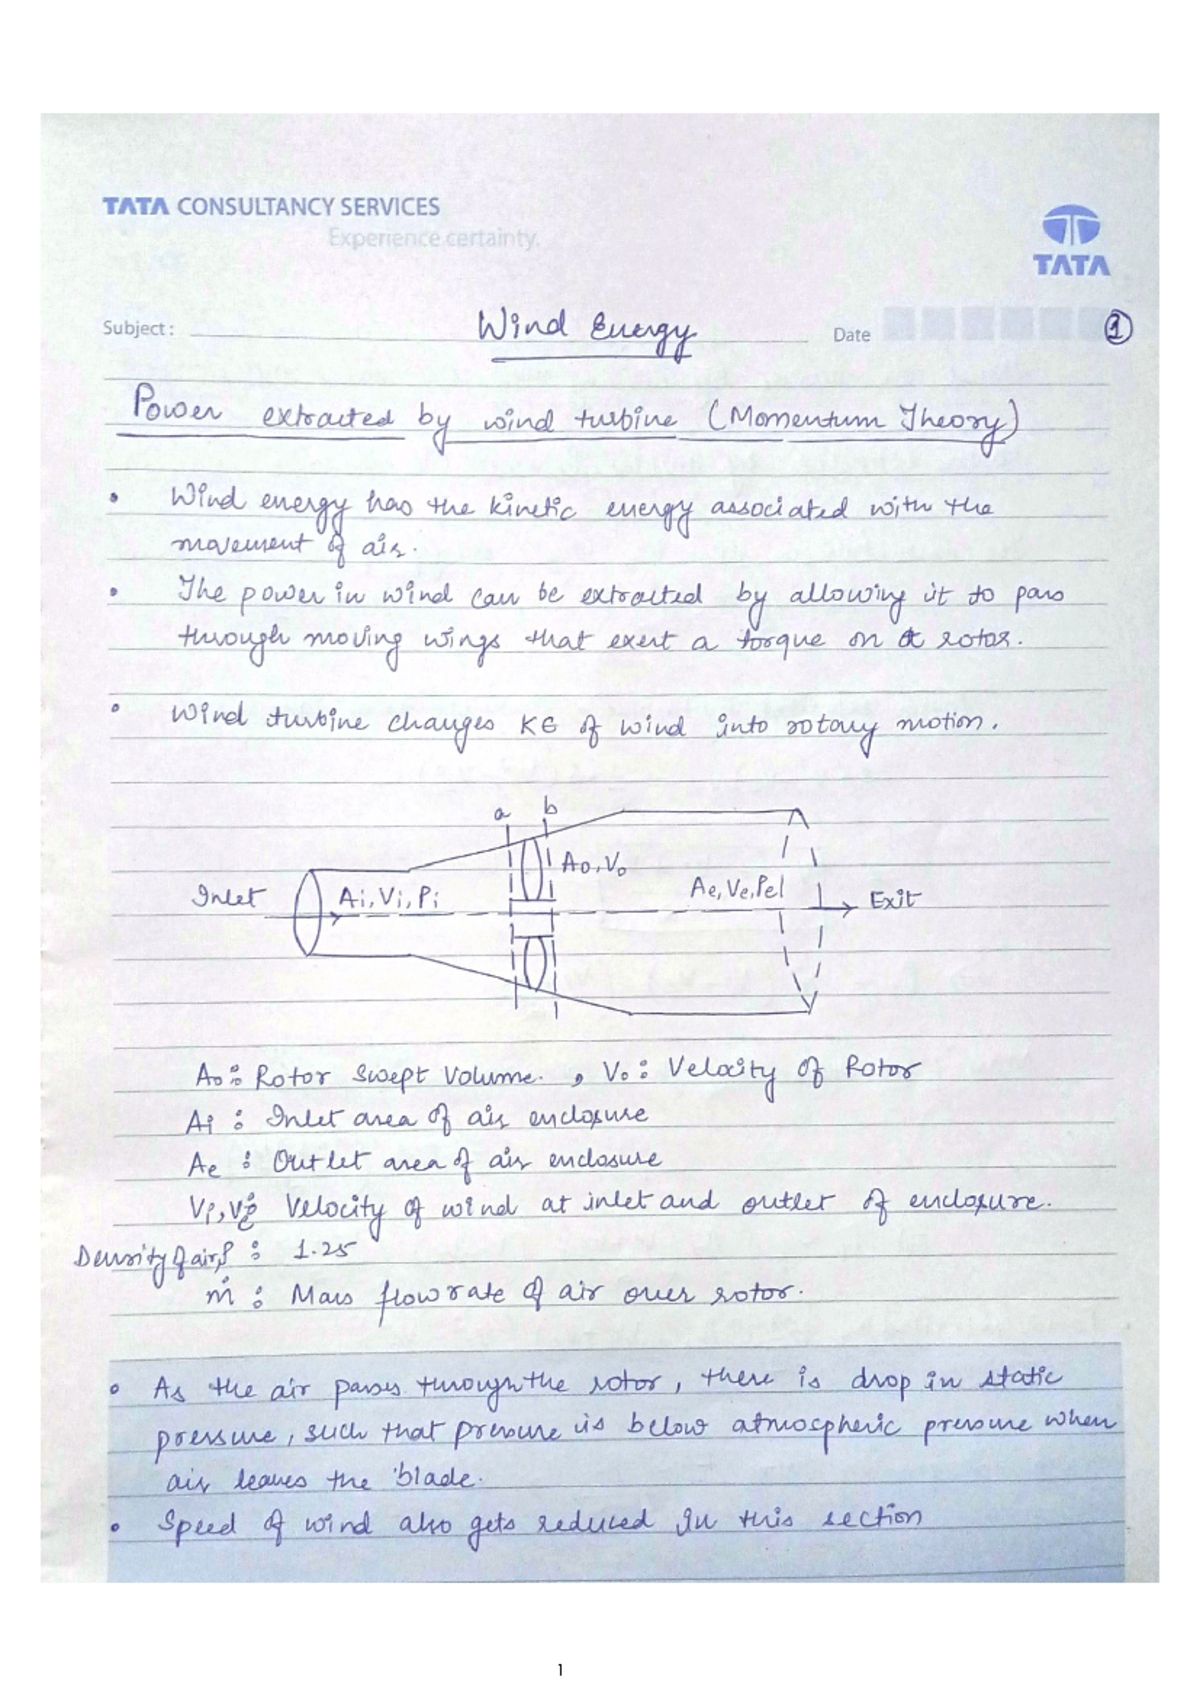 TATA CONSULTANCY SERVICES
Experience certainty.
TATA
Subject :
Wind Energy
Date
1
Power extracted by wind turbine (Momentum Theory)
• Wind energy has the kinetic energy associated with the
movement of air.
• The power in wind can be extracted by allowing it to pass
through moving wings that exert a torque on a rotor.
• Wind turbine changes KE of wind into rotary motion.
a b
Ao, Vo
Inlet Ai, Vi, Pi Ae, Ve, Pe Exit
Ao : Rotor Swept Volume. , Vo : Velocity of Rotor
Ai : Inlet area of air enclosure
Ae : Outlet area of air enclosure
Vi, Ve : Velocity of wind at inlet and outlet of enclosure.
Density of air, ρ : 1.25
ṁ : Mass flow rate of air over rotor.
• As the air passes through the rotor, there is drop in static
pressure, such that pressure is below atmospheric pressure when
air leaves the blade.
• Speed of wind also gets reduced in this section
1